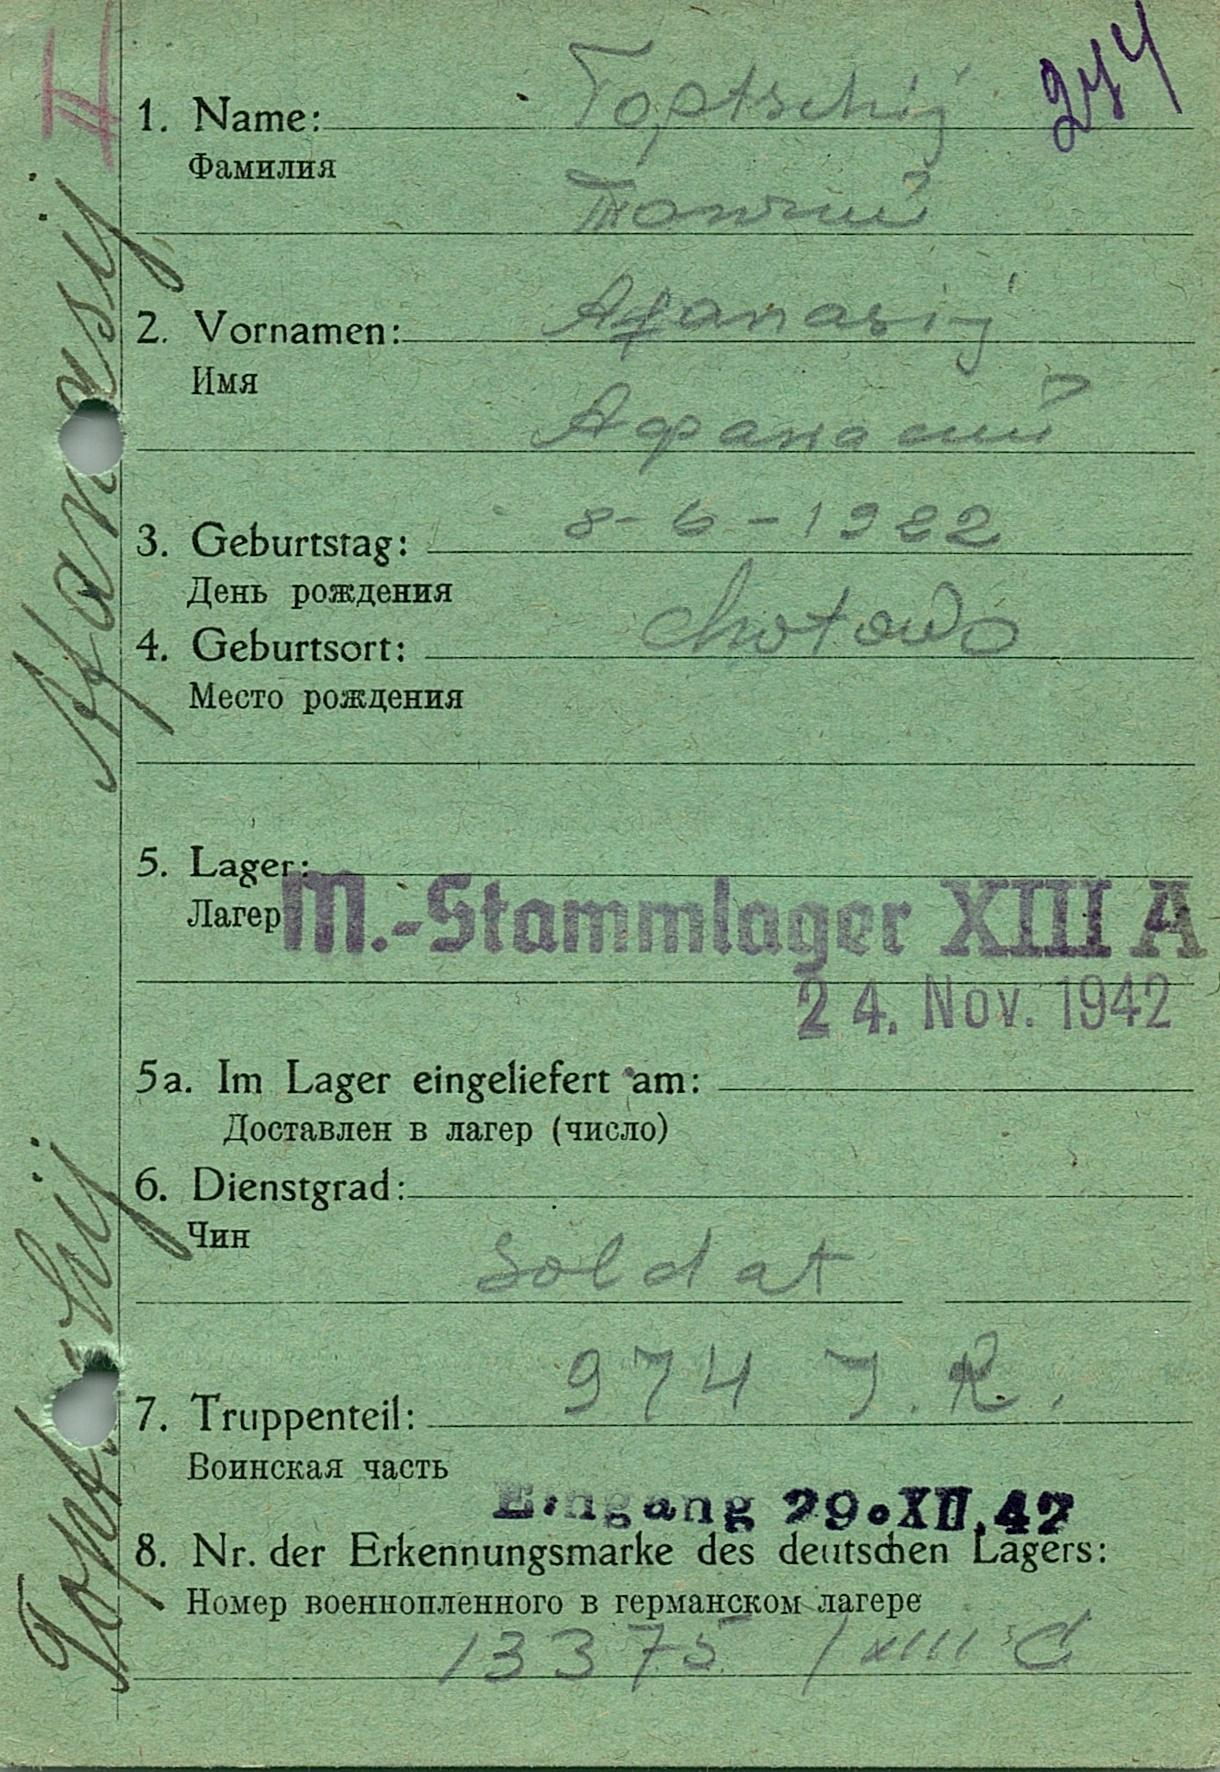 II
274
1. Name: Toptschij
Фамилия
Топчий
2. Vornamen: Afanasij
Имя
Афанасий
3. Geburtstag: 8-6-1922
День рождения
4. Geburtsort: Chotowo
Место рождения
5. Lager:
Лагер M.-Stammlager XIII A
24. Nov. 1942
5a. Im Lager eingeliefert am:
Доставлен в лагер (число)
6. Dienstgrad:
Чин
Soldat
7. Truppenteil: 974 J.R.
Воинская часть
Eingang 29.XII.42
8. Nr. der Erkennungsmarke des deutschen Lagers:
Номер военнопленного в германском лагере
13375 / XIII C
Toptschij Afanasij